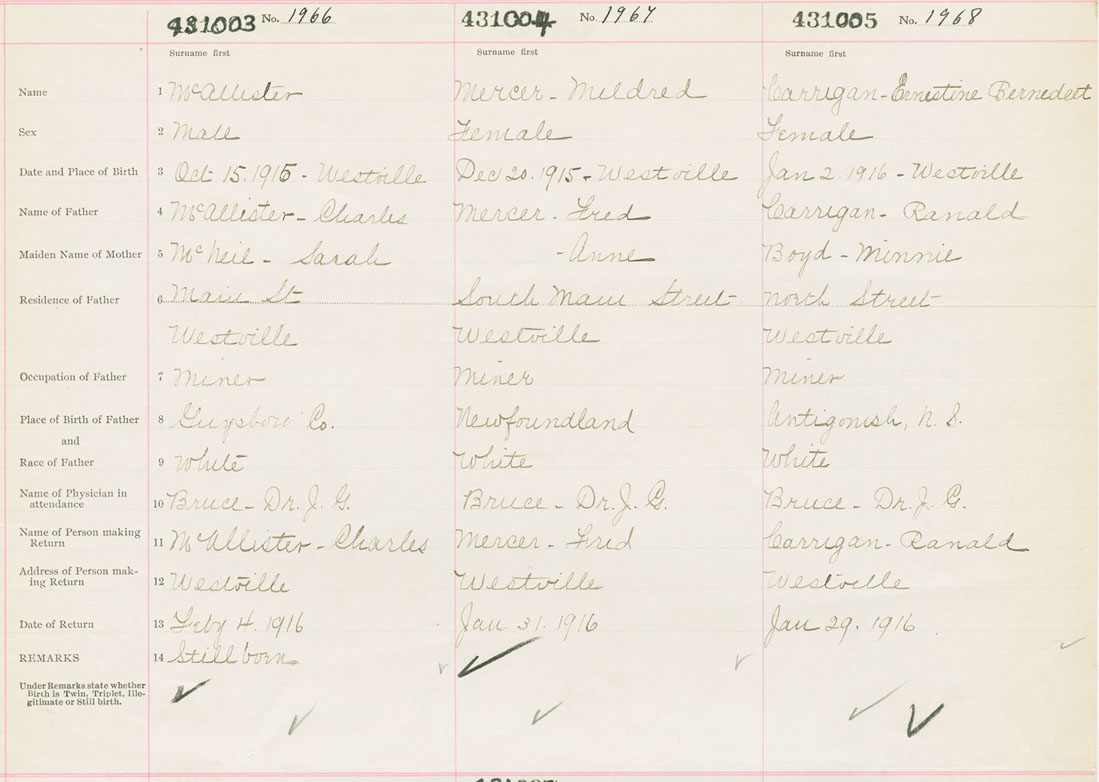 431003 No. 1966 431004 No. 1967 431005 No. 1968
Surname first Surname first Surname first
Name 1 McAllister Mercer - Mildred Carrigan - Ernestine Bernedect
Sex 2 Male Female Female
Date and Place of Birth 3 Oct 15. 1915 - Westville Dec 20. 1915 - Westville Jan 2. 1916 - Westville
Name of Father 4 McAllister - Charles Mercer - Fred Carrigan - Ranald
Maiden Name of Mother 5 McNeil - Sarah - Anne Boyd - Minnie
Residence of Father 6 Main St South Main Street North Street
Westville Westville Westville
Occupation of Father 7 Miner Miner Miner
Place of Birth of Father 8 Guysboro Co. Newfoundland Antigonish, N. S.
and
Race of Father 9 White White White
Name of Physician in
attendance 10 Bruce - Dr. J. G. Bruce - Dr. J. G. Bruce - Dr. J. G.
Name of Person making
Return 11 McAllister - Charles Mercer - Fred Carrigan - Ranald
Address of Person mak-
ing Return 12 Westville Westville Westville
Date of Return 13 Feby 4. 1916 Jan 31. 1916 Jan 29. 1916
REMARKS 14 Stillborn
Under Remarks state whether
Birth is Twin, Triplet, Ille-
gitimate or Still birth.